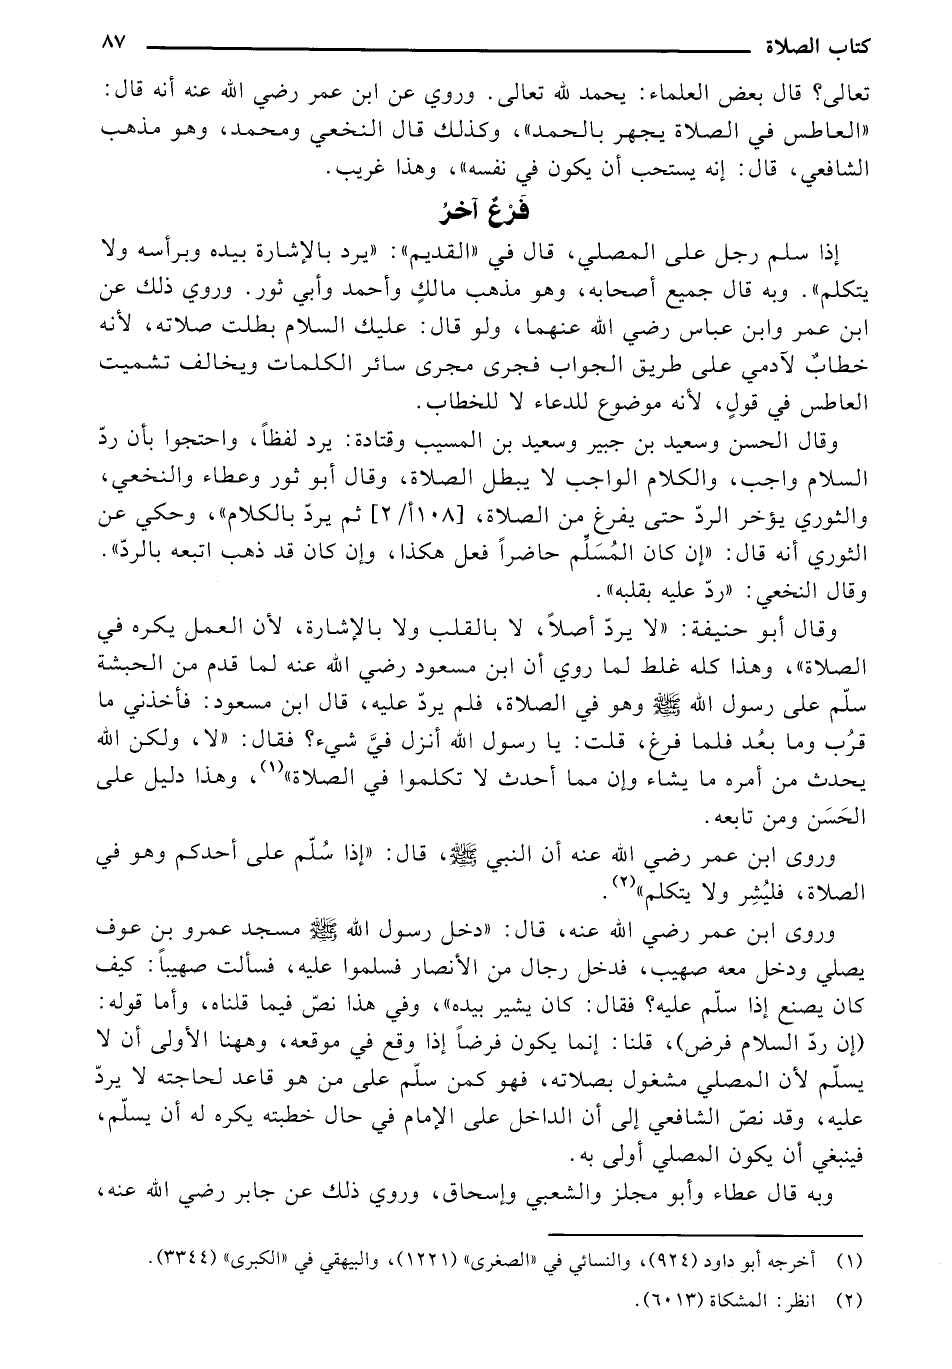 كتاب الصلاة ٨٧
تعالى؟ قال بعض العلماء: يحمد لله تعالى. وروي عن ابن عمر رضي الله عنه أنه قال:
«العاطس في الصلاة يجهر بالحمد»، وكذلك قال النخعي ومحمد، وهو مذهب
الشافعي، قال: إنه يستحب أن يكون في نفسه»، وهذا غريب.
فَرْعٌ آخرُ
إذا سلم رجل على المصلي، قال في «القديم»: «يرد بالإشارة بيده وبرأسه ولا
يتكلم». وبه قال جميع أصحابه، وهو مذهب مالكٍ وأحمد وأبي ثور. وروي ذلك عن
ابن عمر وابن عباس رضي الله عنهما، ولو قال: عليك السلام بطلت صلاته، لأنه
خطابٌ لآدمي على طريق الجواب فجرى مجرى سائر الكلمات ويخالف تشميت
العاطس في قولٍ، لأنه موضوع للدعاء لا للخطاب.
وقال الحسن وسعيد بن جبير وسعيد بن المسيب وقتادة: يرد لفظاً، واحتجوا بأن ردّ
السلام واجب، والكلام الواجب لا يبطل الصلاة، وقال أبو ثور وعطاء والنخعي،
والثوري يؤخر الردّ حتى يفرغ من الصلاة، [١٠٨أ/ ٢] ثم يردّ بالكلام»، وحكي عن
الثوري أنه قال: «إن كان المُسَلِّم حاضراً فعل هكذا، وإن كان قد ذهب اتبعه بالردّ».
وقال النخعي: «ردّ عليه بقلبه».
وقال أبو حنيفة: «لا يردّ أصلاً، لا بالقلب ولا بالإشارة، لأن العمل يكره في
الصلاة»، وهذا كله غلط لما روي أن ابن مسعود رضي الله عنه لما قدم من الحبشة
سلّم على رسول الله ﷺ وهو في الصلاة، فلم يردّ عليه، قال ابن مسعود: فأخذني ما
قرُب وما بعُد فلما فرغ، قلت: يا رسول الله أنزل فيَّ شيء؟ فقال: «لا، ولكن الله
يحدث من أمره ما يشاء وإن مما أحدث لا تكلموا في الصلاة»(١)، وهذا دليل على
الحَسَن ومن تابعه.
وروى ابن عمر رضي الله عنه أن النبي ﷺ، قال: «إذا سُلّم على أحدكم وهو في
الصلاة، فليُشِر ولا يتكلم»(٢).
وروى ابن عمر رضي الله عنه، قال: «دخل رسول الله ﷺ مسجد عمرو بن عوف
يصلي ودخل معه صهيب، فدخل رجال من الأنصار فسلموا عليه، فسألت صهيباً: كيف
كان يصنع إذا سلّم عليه؟ فقال: كان يشير بيده»، وفي هذا نصّ فيما قلناه، وأما قوله:
(إن ردّ السلام فرض)، قلنا: إنما يكون فرضاً إذا وقع في موقعه، وههنا الأولى أن لا
يسلّم لأن المصلي مشغول بصلاته، فهو كمن سلّم على من هو قاعد لحاجته لا يردّ
عليه، وقد نصّ الشافعي إلى أن الداخل على الإمام في حال خطبته يكره له أن يسلّم،
فينبغي أن يكون المصلي أولى به.
وبه قال عطاء وأبو مجلز والشعبي وإسحاق، وروي ذلك عن جابر رضي الله عنه،
(١) أخرجه أبو داود (٩٢٤)، والنسائي في «الصغرى» (١٢٢١)، والبيهقي في «الكبرى» (٣٣٤٤).
(٢) انظر: المشكاة (٦٠١٣).